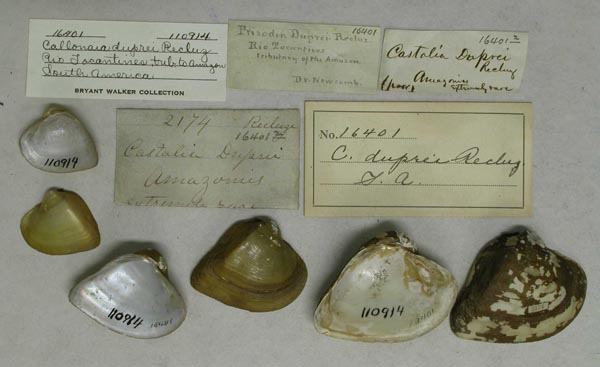 16401 110914
Callonaia duprei Recluz
Rio Tocantines trib to Amazon
South America
BRYANT WALKER COLLECTION
16401
Prisodon Duprei Recluz
Rio Tocantines
tributary of the Amazon.
Dr. Newcomb.
16401
Castalia Duprei
Recluz
Amazonis
extremely rare
2174 Recluze
16401
Castalia Duprei
Amazonis
extremely rare
No. 16401
C. duprei Recluz
S. A.
110914
110914
16401
110914
16401